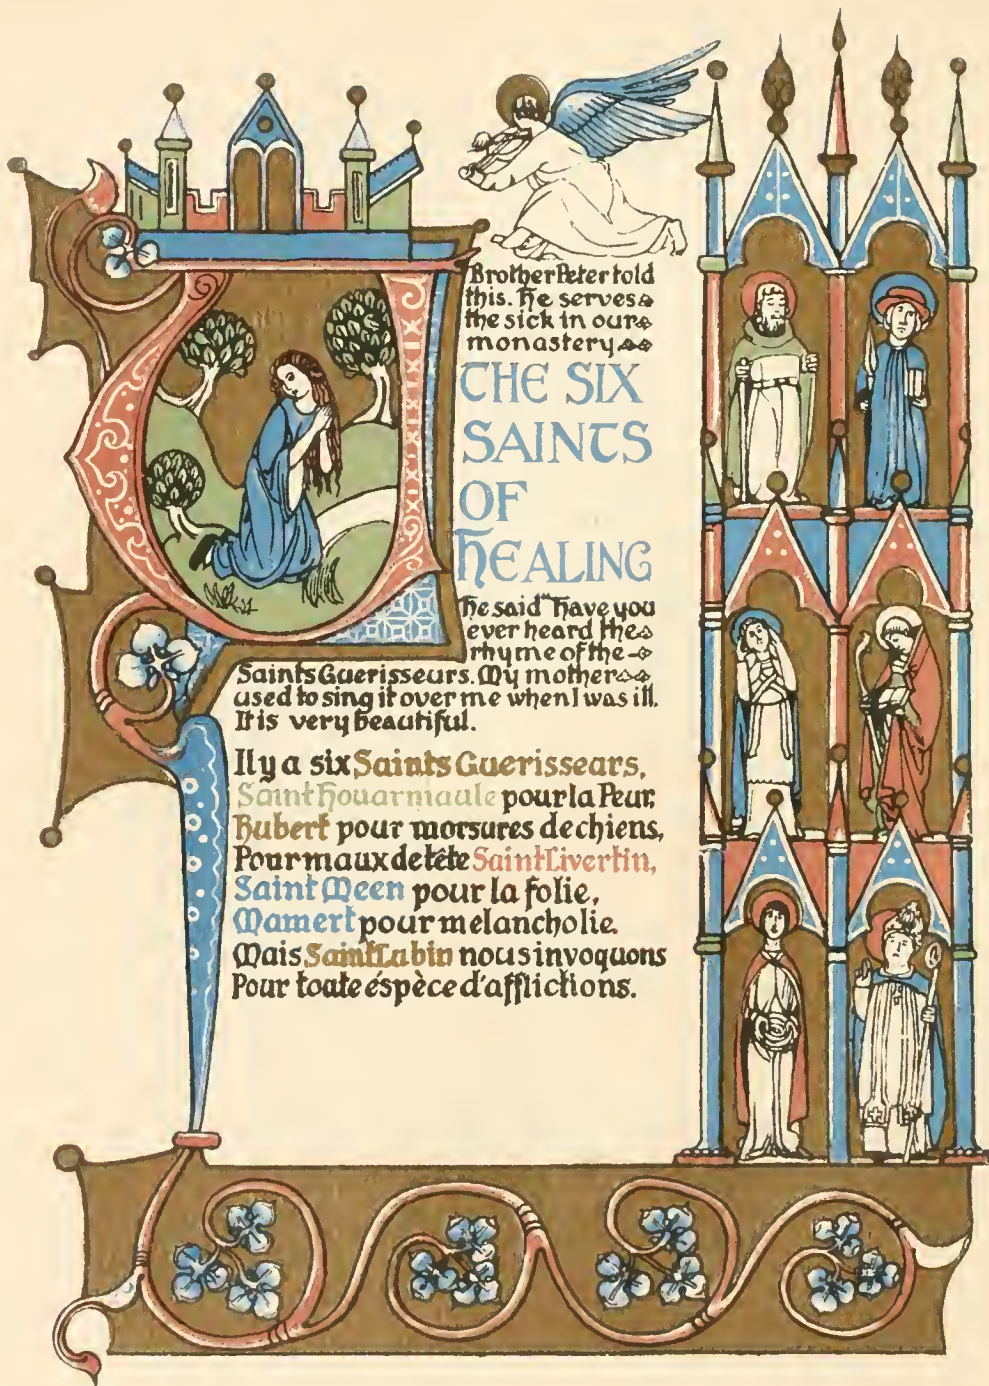 Brother Peter told
this. He serves
the sick in our
monastery
THE SIX
SAINTS
OF
HEALING
He said "Have you
ever heard the
rhyme of the
Saints Guerisseurs. My mother
used to sing it over me when I was ill.
It is very beautiful.
Il y a six Saints Guerissears,
Saint Houarniaule pour la Peur,
Hubert pour morsures de chiens,
Pour maux de tête Saint Livertin,
Saint Meen pour la folie,
Mamert pour melancholie.
Mais Saint Lubin nous invoquons
Pour toute éspèce d'afflictions.